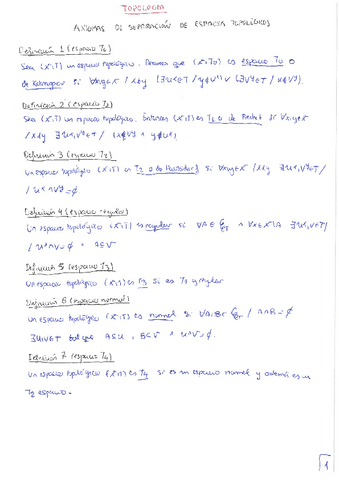 TOPOLOGÍA
AXIOMAS DE SEPARACIÓN DE ESPACIOS TOPOLÓGICOS
Definición 1 (espacio T0)
Sea (X,T) un espacio topológico. Diremos que (X,T) es espacio T0 o
de Kolmogorov si ∀x,y∈X / x≠y
Definición 2 (espacio T1)
Sea (X,T) un espacio topológico. Entonces (X,T) es T1 o de Frechet si ∀x,y∈X
/ x≠y ∃Ux,Vy∈T / x∉Vy ∧ y∉Ux
Definición 3 (espacio T2)
Un espacio topológico (X,T) es T2 o de Hausdorff si ∀x,y∈X / x≠y ∃Ux,Vy∈T
/ Ux∩Vy=∅
Definición 4 (espacio regular)
Un espacio topológico (X,T) es regular si ∀A∈ ∧ ∀x∈X\A ∃Ux,V∈T
/ Ux∩V=∅ ∧ A⊆V
Definición 5 (espacio T3)
Un espacio topológico (X,T) es T3 si es y regular
Definición 6 (espacio normal)
Un espacio topológico (X,T) es normal si ∀A,B∈ / A∩B=∅
∃U,V∈T tal que A⊆U, B⊆V ∧ U∩V=∅
Definición 7 (espacio T4)
Un espacio topológico (X,T) es T4 si es un espacio normal y además es un
T2 espacio.
1